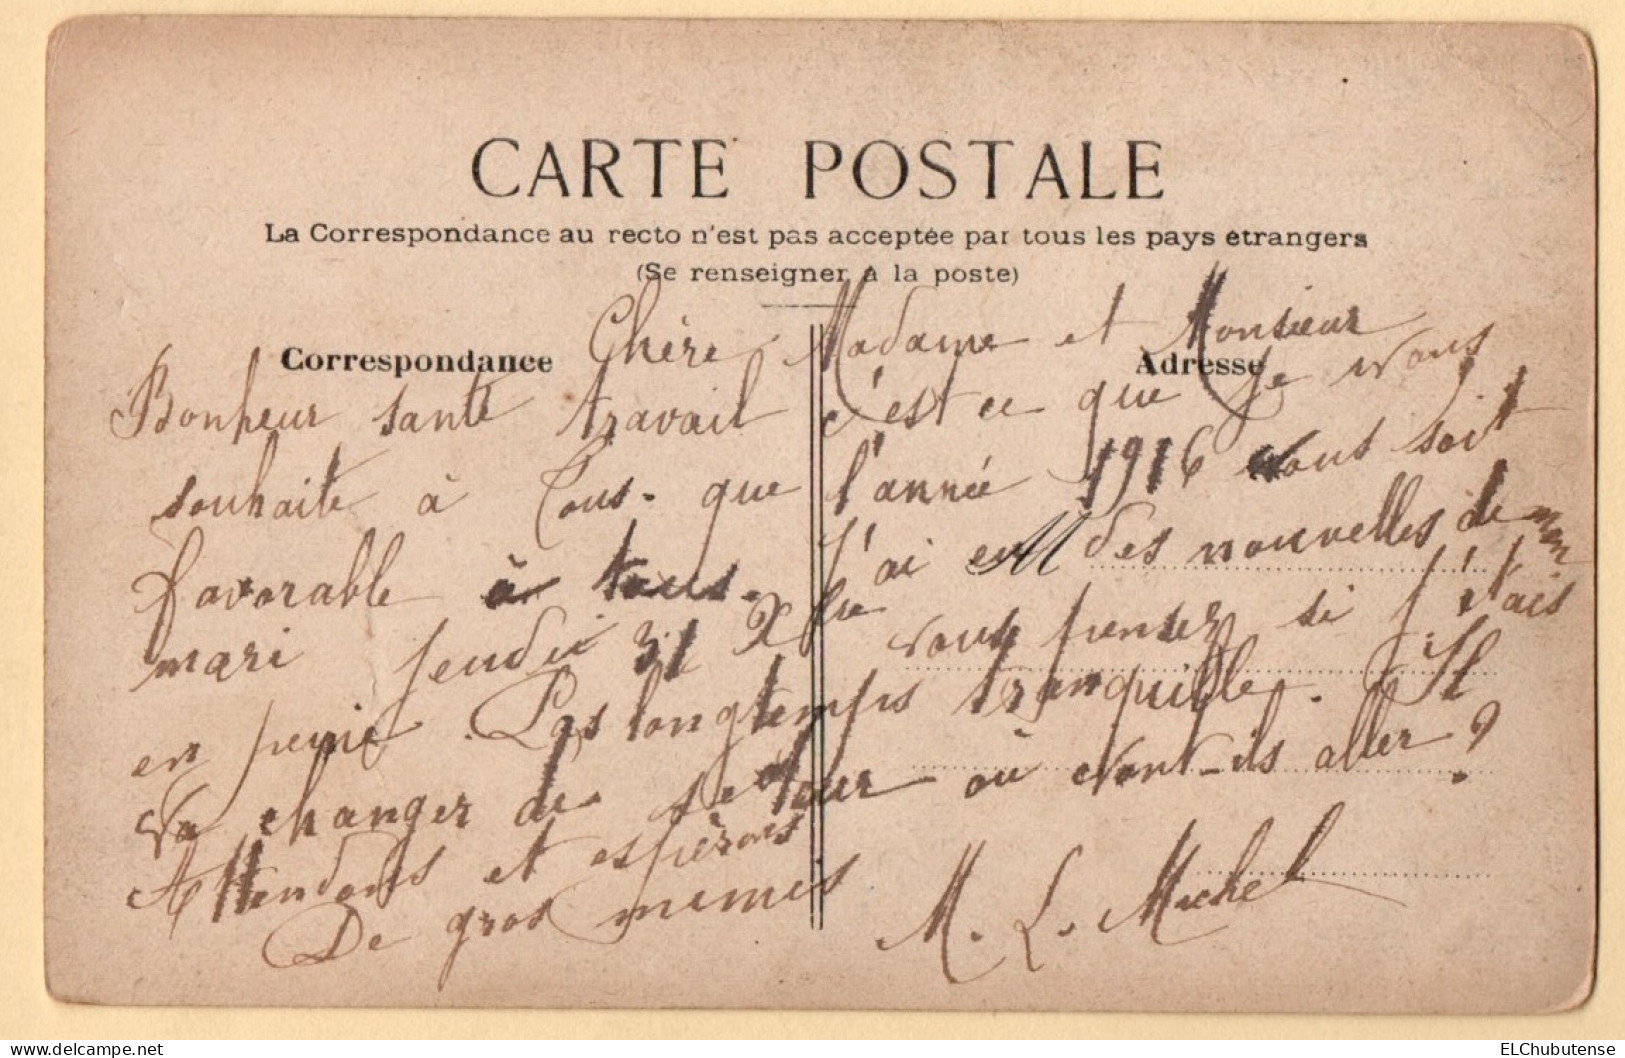 CARTE POSTALE
La Correspondance au recto n'est pas acceptée par tous les pays étrangers
(Se renseigner à la poste)
Correspondance
Adresse
Chère Madame et Monsieur
Bonheur santé travail c'est ce que je vous
souhaite à tous. que l'année 1916 vous soit
favorable à tous. J'ai eu des nouvelles de mon
mari jeudi 31 vous pensez si j'étais
en peine. Pas longtemps tranquille. Il
va changer de secteur où vont-ils aller?
Attendons et espérons
De gros mimis M. L. Michel
ELChubutense